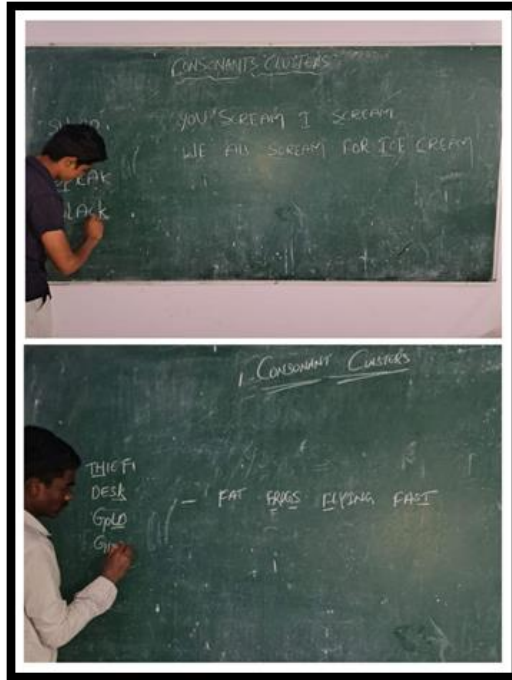 CONSONANTS CLUSTERS
YOU SCREAM I SCREAM
WE ALL SCREAM FOR ICE CREAM
BLACK
1. CONSONANT CLUSTERS
THIEF
DESK
GOLD
- FAT FROGS FLYING FAST